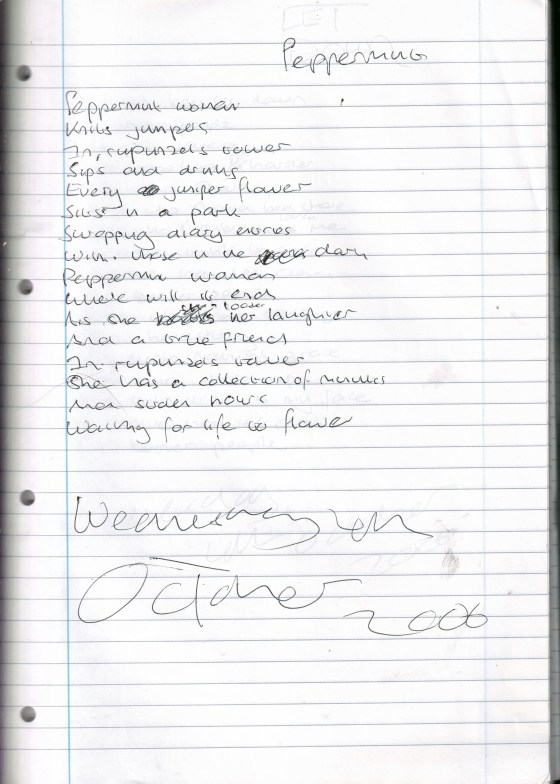 Peppermint
Peppermint woman
Knits jumpers
In, rupunzels tower
Sips and drinks
Every juniper flower
Sits in a park
Swapping diary entries
With those in the dark
Peppermint woman
Where will it end
As she looses her laughter
And a true friend
In rupunzels tower
She has a collection of minutes
And hours
Waiting for life to flower
Wednesday
October 2006